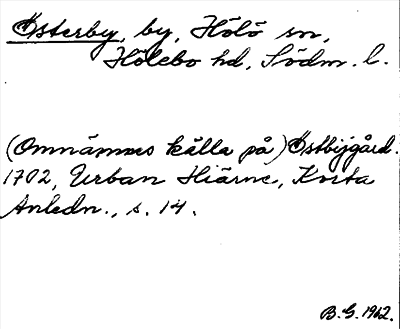 Österby, by, Hölö sn,
Hölebo hd, Södm. l.
(Omnämnes källa på) Östbijgård.
1702, Urban Hiärne, Korta
Anledn., s. 14.
B.G. 1962.